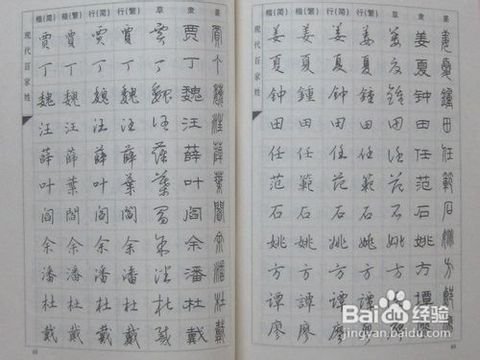 楷(简) 楷(繁) 行(简) 行(繁) 草 隶 篆
现代百家姓
贾 賈 贾 賈 贾 贾 賈
丁 丁 丁 丁 丁 丁 丁
魏 魏 魏 魏 魏 魏 魏
汪 汪 汪 汪 汪 汪 汪
薛 薛 薛 薛 薛 薛 薛
叶 葉 叶 葉 葉 叶 葉
阎 閻 阎 閻 阎 阎 閻
余 余 余 余 余 余 余
潘 潘 潘 潘 潘 潘 潘
杜 杜 杜 杜 杜 杜 杜
戴 戴 戴 戴 戴 戴 戴
楷(简) 楷(繁) 行(简) 行(繁) 草 隶 篆
现代百家姓
姜 姜 姜 姜 姜 姜 姜
夏 夏 夏 夏 夏 夏 夏
钟 鍾 钟 鍾 鍾 钟 鐘
田 田 田 田 田 田 田
任 任 任 任 任 任 任
范 範 范 範 范 范 範
石 石 石 石 石 石 石
姚 姚 姚 姚 姚 姚 姚
方 方 方 方 方 方 方
谭 譚 谭 譚 谭 谭 譚
廖 廖 廖 廖 廖 廖 廖
Baidu经验
jingyan.baidu.com